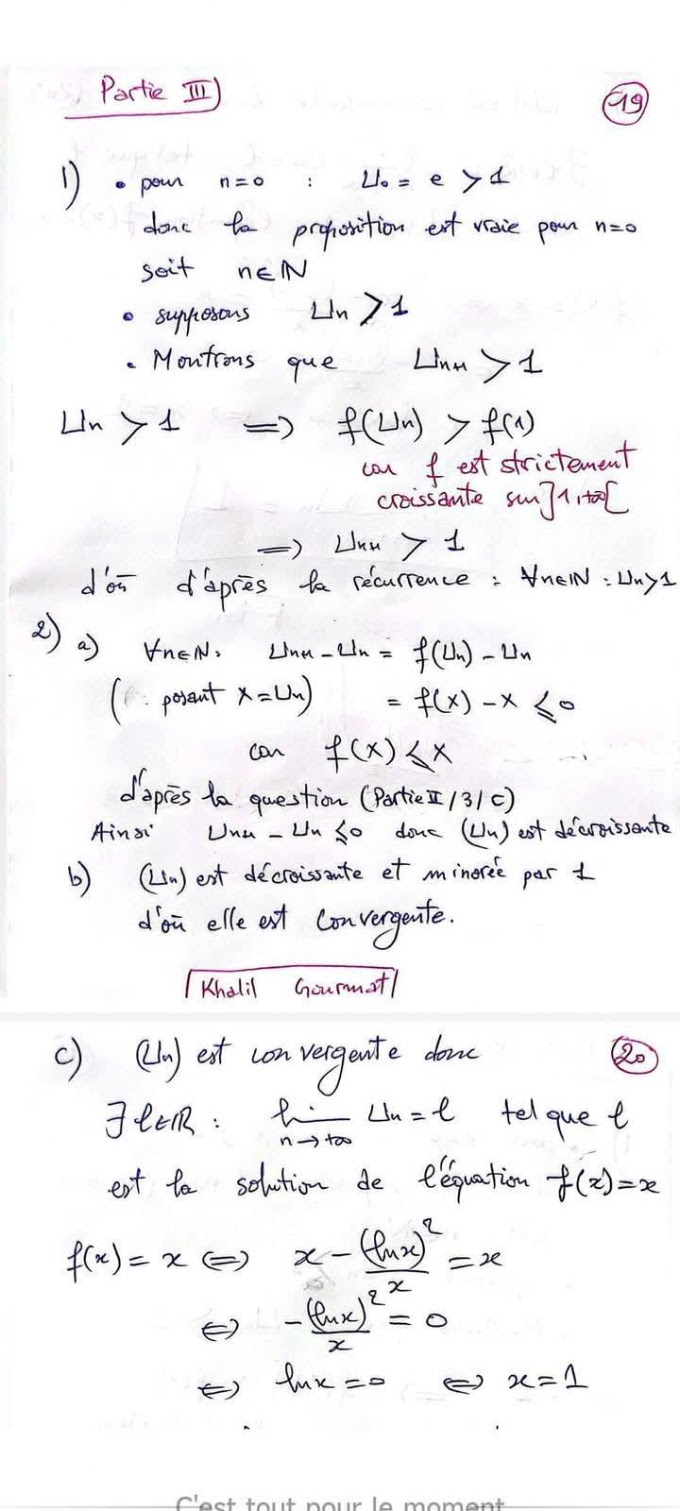 Partie III)
19
1) • pour n=0 : U₀ = e > 1
donc la proposition est vraie pour n=0
soit n∈ℕ
• supposons Un > 1
• Montrons que Un+1 > 1
Un > 1 ⟹ f(Un) > f(1)
car f est strictement
croissante sur ]1,+∞[
⟹ Un+1 > 1
d'où d'après la récurrence : ∀n∈ℕ : Un>1
2) a) ∀n∈ℕ, Un+1 - Un = f(Un) - Un
( posant x=Un) = f(x) - x ≤ 0
car f(x) ≤ x
d'après la question (Partie II/3/c)
Ainsi Un+1 - Un ≤ 0 donc (Un) est décroissante
b) (Un) est décroissante et minorée par 1
d'où elle est convergente.
Khalil Gourmat
c) (Un) est convergente donc
20
∃ l∈ℝ : lim n→+∞ Un = l tel que l
est la solution de l'équation f(x)=x
f(x) = x ⟺ x - (lnx)²/x = x
⟺ -(lnx)²/x = 0
⟺ lnx = 0 ⟺ x = 1
C'est tout pour le moment